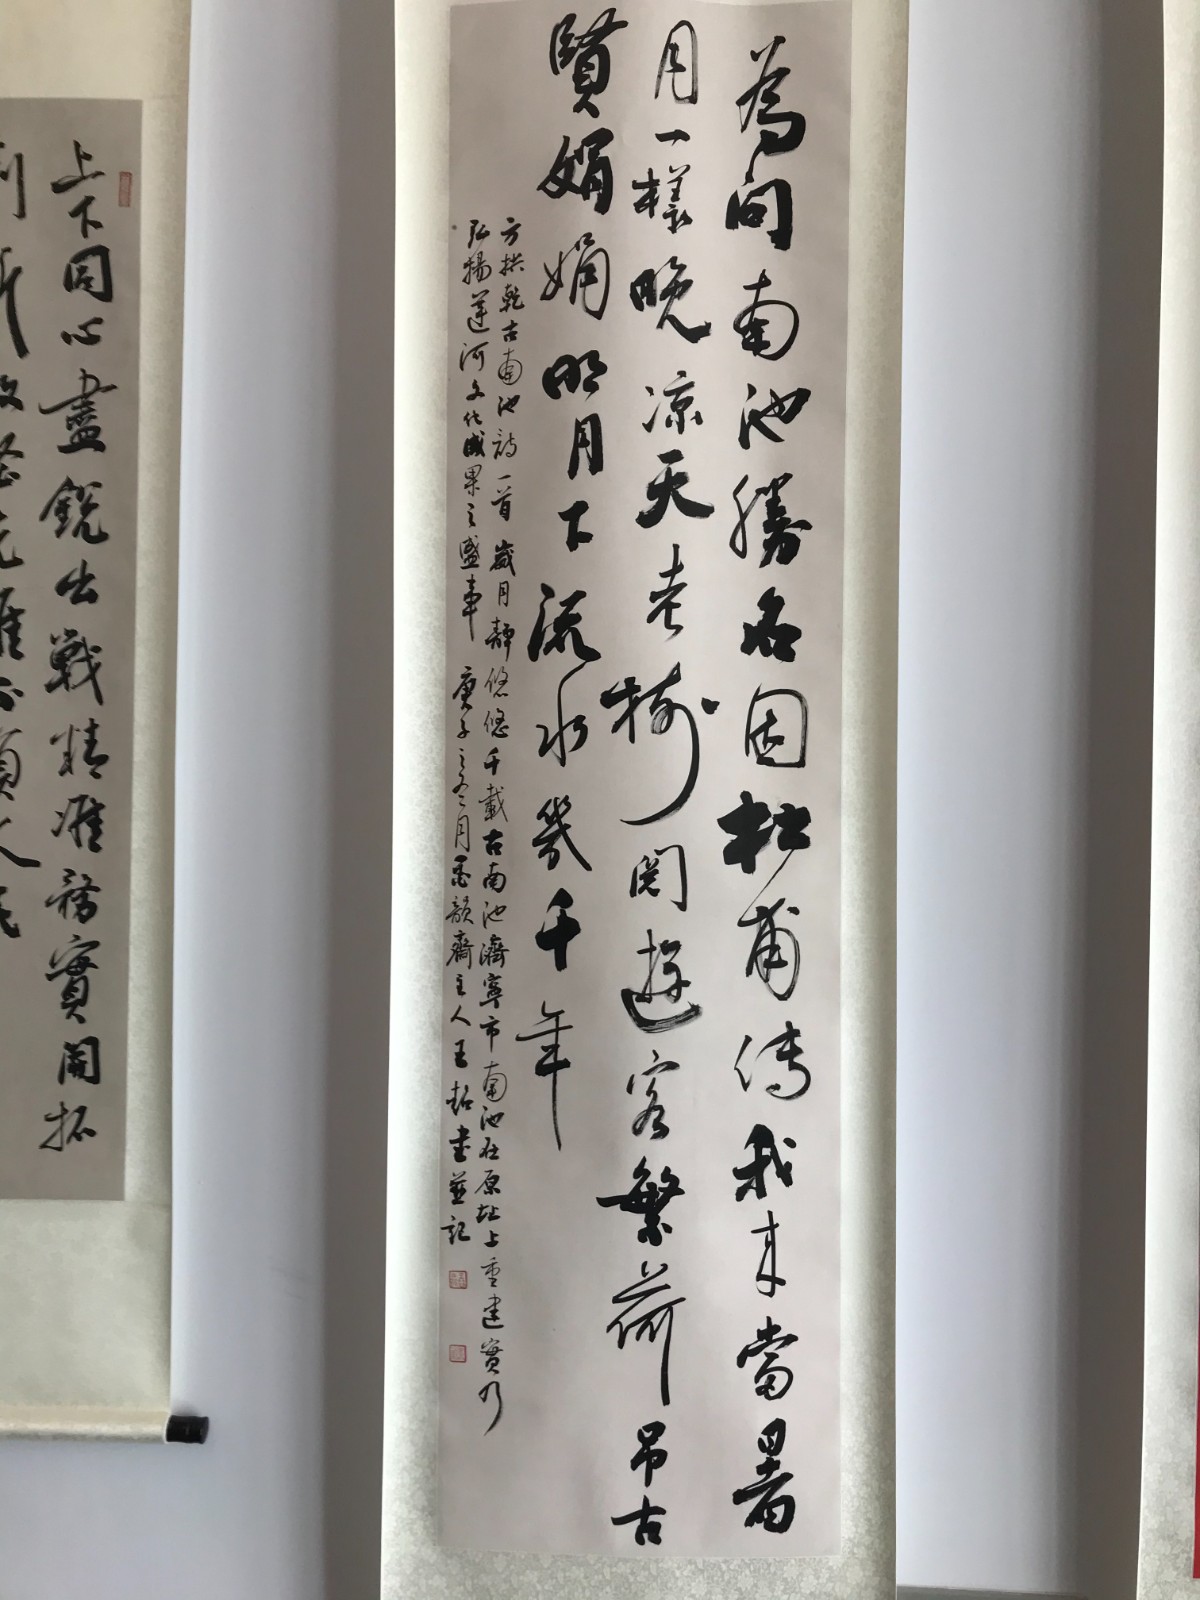 為问南池勝名因杜甫傳我来當暑
月一樣晚凉天老樹閱遊客繁荷吊古
賢娟娟明月下流水幾千年
方拱乾古南池詩一首 歲月静悠悠千載古南池濟寧市南池在原址上重建實乃
弘揚運河文化成果之盛事 庚子之冬月墨韻齋主人王超書並記
上下同心盡鋭出戰精準務實開拓